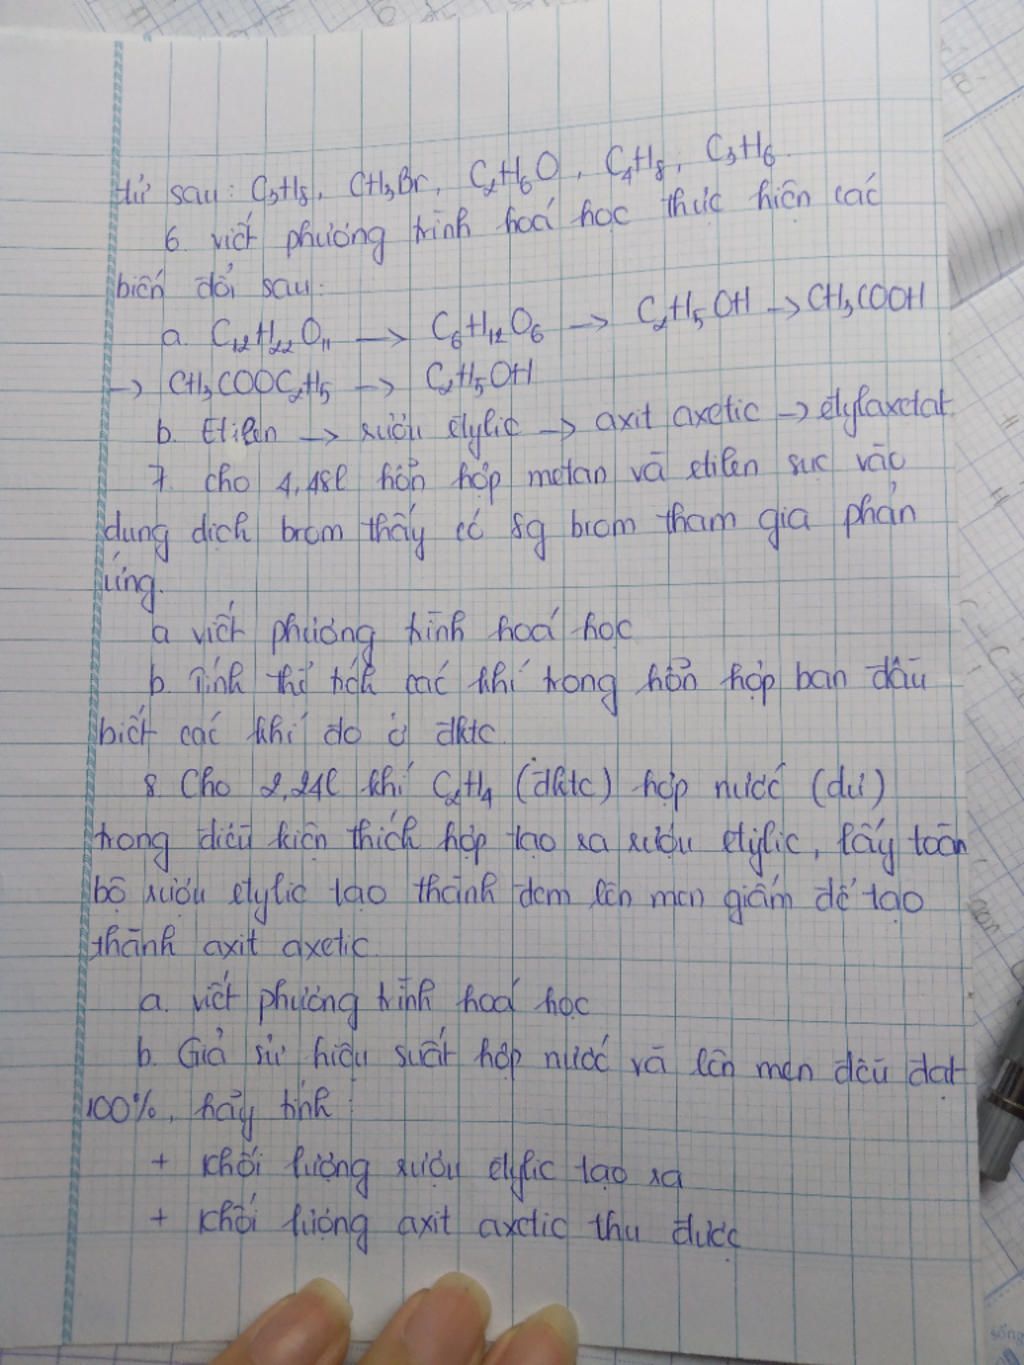 tử sau: C₃H₈, CH₃Br, C₂H₆O, C₄H₈, C₃H₆.
6. viết phương trình hoá học thực hiện các
biến đổi sau:
a. C₁₂H₂₂O₁₁ → C₆H₁₂O₆ → C₂H₅OH → CH₃COOH
→ CH₃COOC₂H₅ → C₂H₅OH
b. Etilen → rượu etylic → axit axetic → etylaxetat
7. cho 4,48l hổn hợp metan và etilen sục vào
dung dịch brom thấy có 8g brom tham gia phản
ứng.
a viết phương trình hoá học
b. Tính thể tích các khí trong hổn hợp ban đầu
biết các khí đo ở đktc
8. Cho 2,24l khí C₂H₄ (đktc) hợp nước (dư)
trong điều kiện thích hợp tạo ra rượu etylic, lấy toàn
bộ rượu etylic tạo thành đem lên men giấm để tạo
thành axit axetic.
a. viết phương trình hoá học
b. Giả sử hiệu suất hợp nước và lên men đều đạt
100%, hãy tính:
+ khối lượng rượu etylic tạo ra
+ khối lượng axit axetic thu được